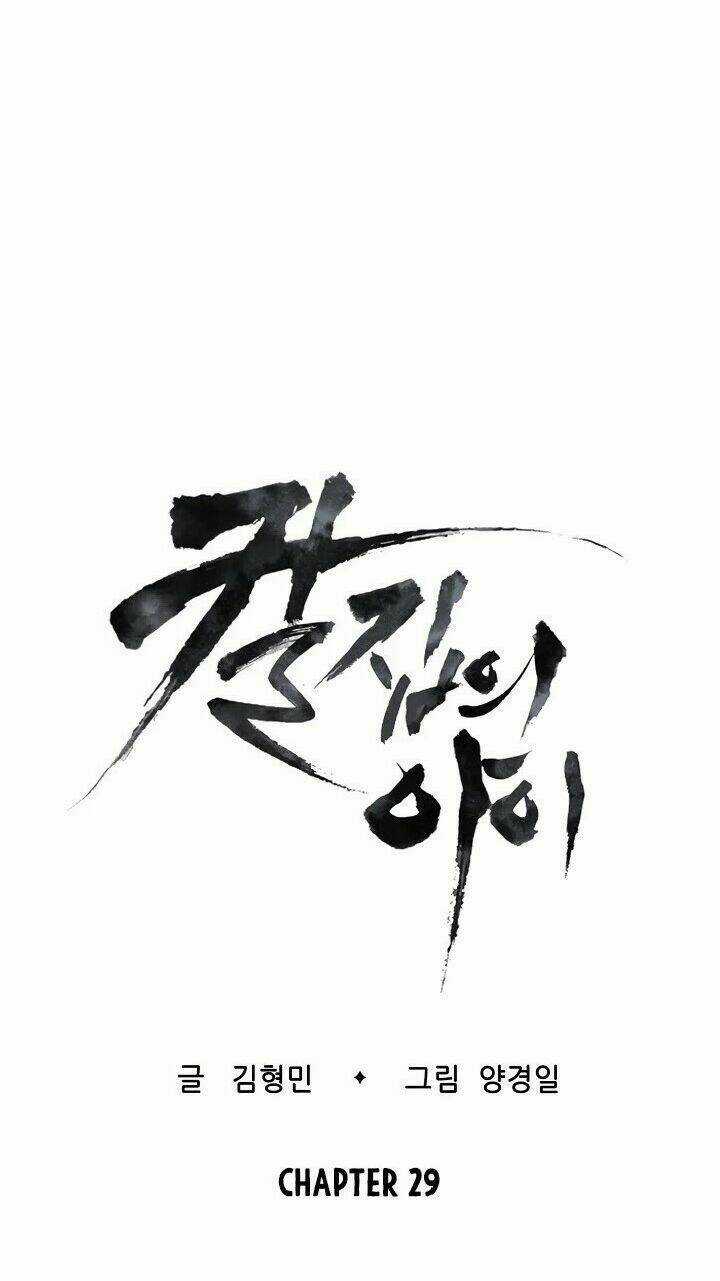 칼집의
아이
글 김형민 ✦ 그림 양경일
CHAPTER 29